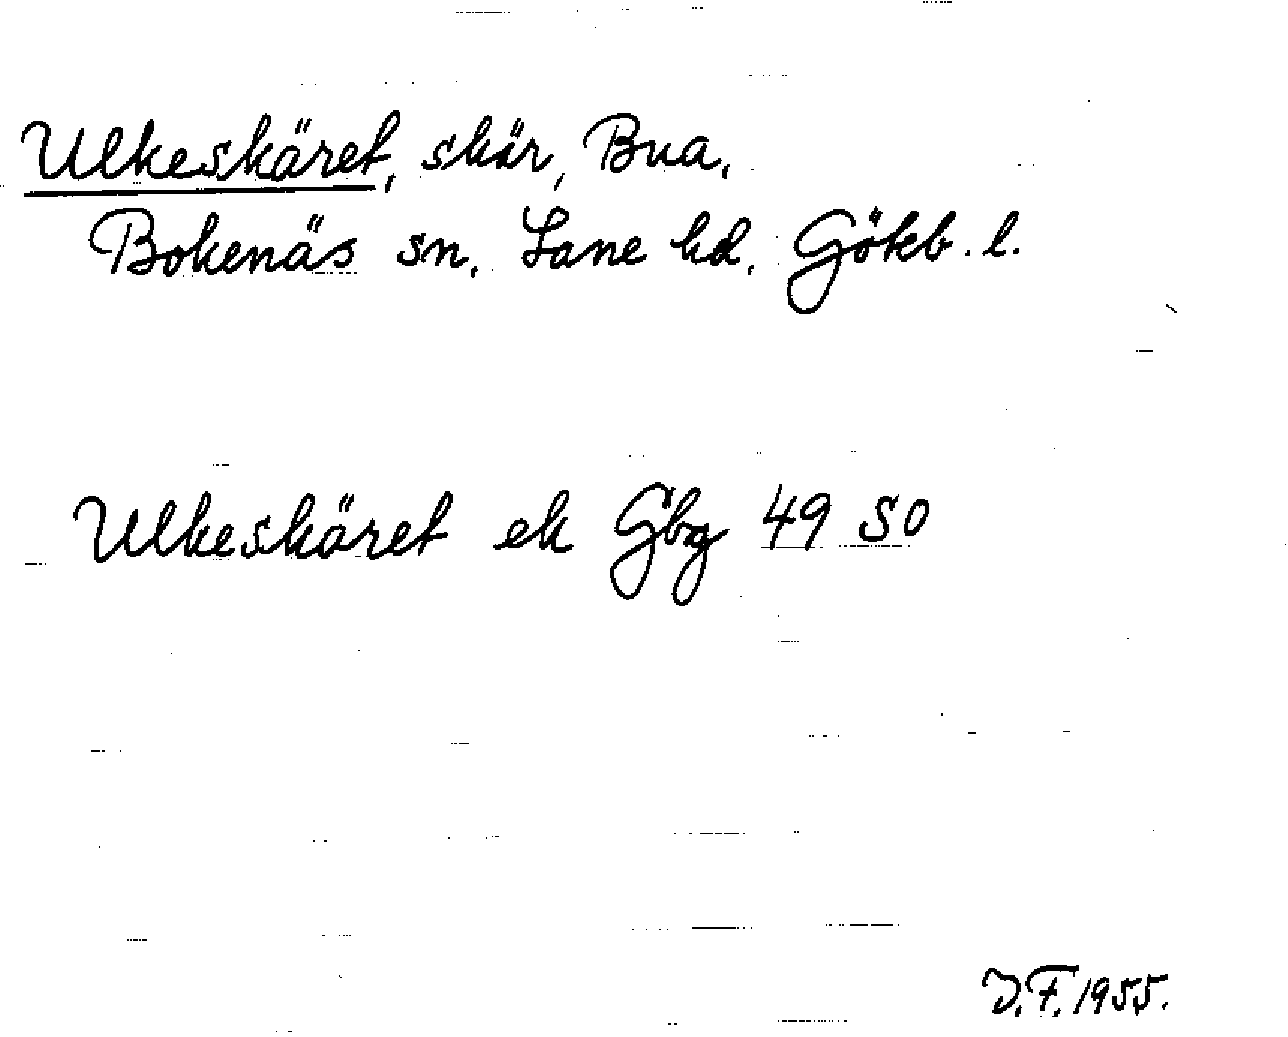 Ulkeskäret, skär, Bua,
Bokenäs sn, Lane hd, Gökb. l.
Ulkeskäret ek Gbg 49 SO
D.F. 1955.